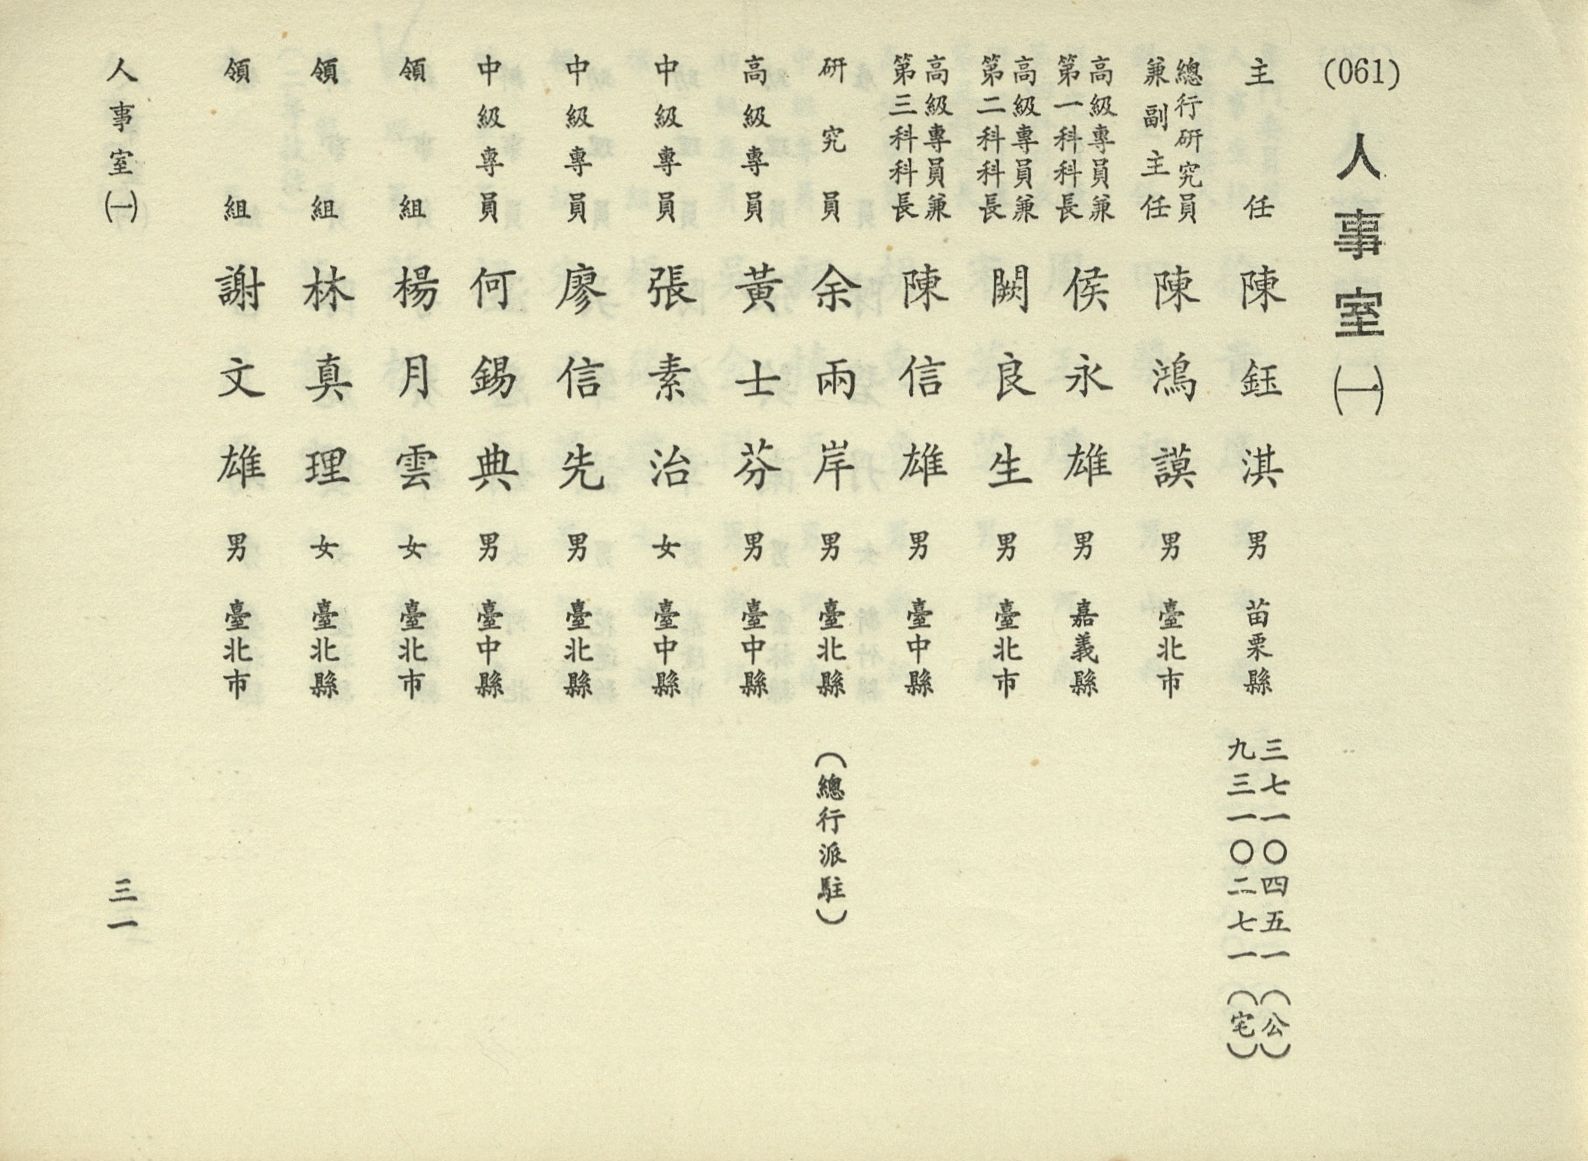 (061) 人事室㈠
主任 陳鈺淇 男 苗栗縣 三七一〇四五一(公) 九三一〇二七一(宅)
總行研究員兼副主任 陳鴻謨 男 臺北市
高級專員兼第一科科長 侯永雄 男 嘉義縣
高級專員兼第二科科長 闕良生 男 臺北市
高級專員兼第三科科長 陳信雄 男 臺中縣
研究員 余兩岸 男 臺北縣 (總行派駐)
高級專員 黃士芬 男 臺中縣
中級專員 張素治 女 臺中縣
中級專員 廖信先 男 臺北縣
中級專員 何錫典 男 臺中縣
領組 楊月雲 女 臺北市
領組 林真理 女 臺北縣
領組 謝文雄 男 臺北市
人事室㈠ 三一